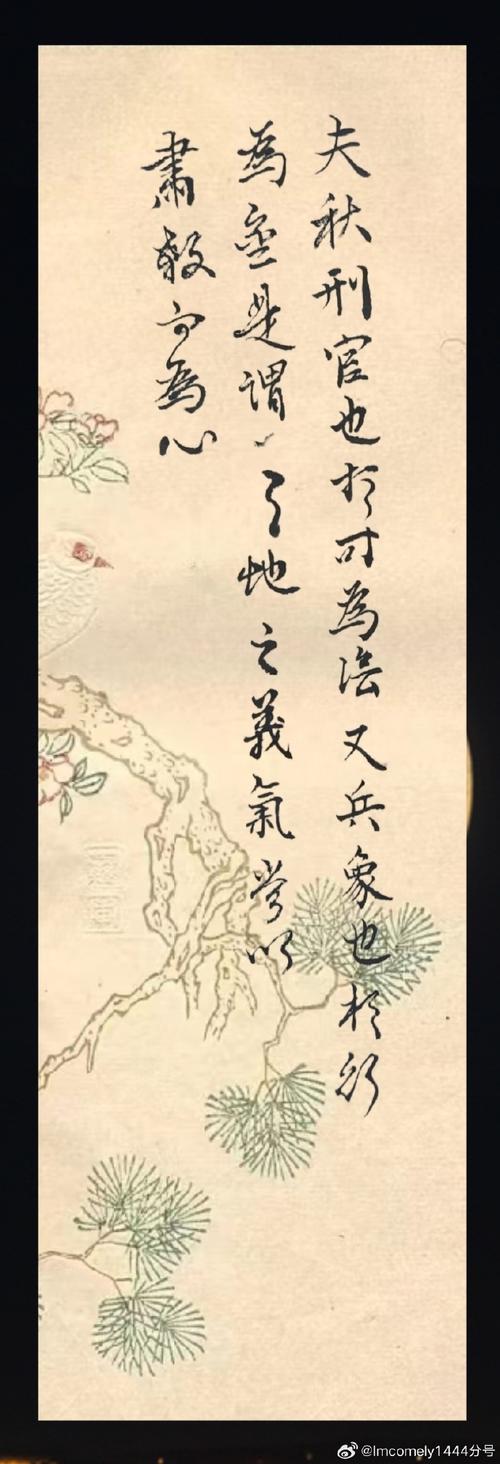 夫秋刑官也於时為陰又兵象也於行
為金是謂地之義氣常以
肅殺而為心
@Imcomely1444分号